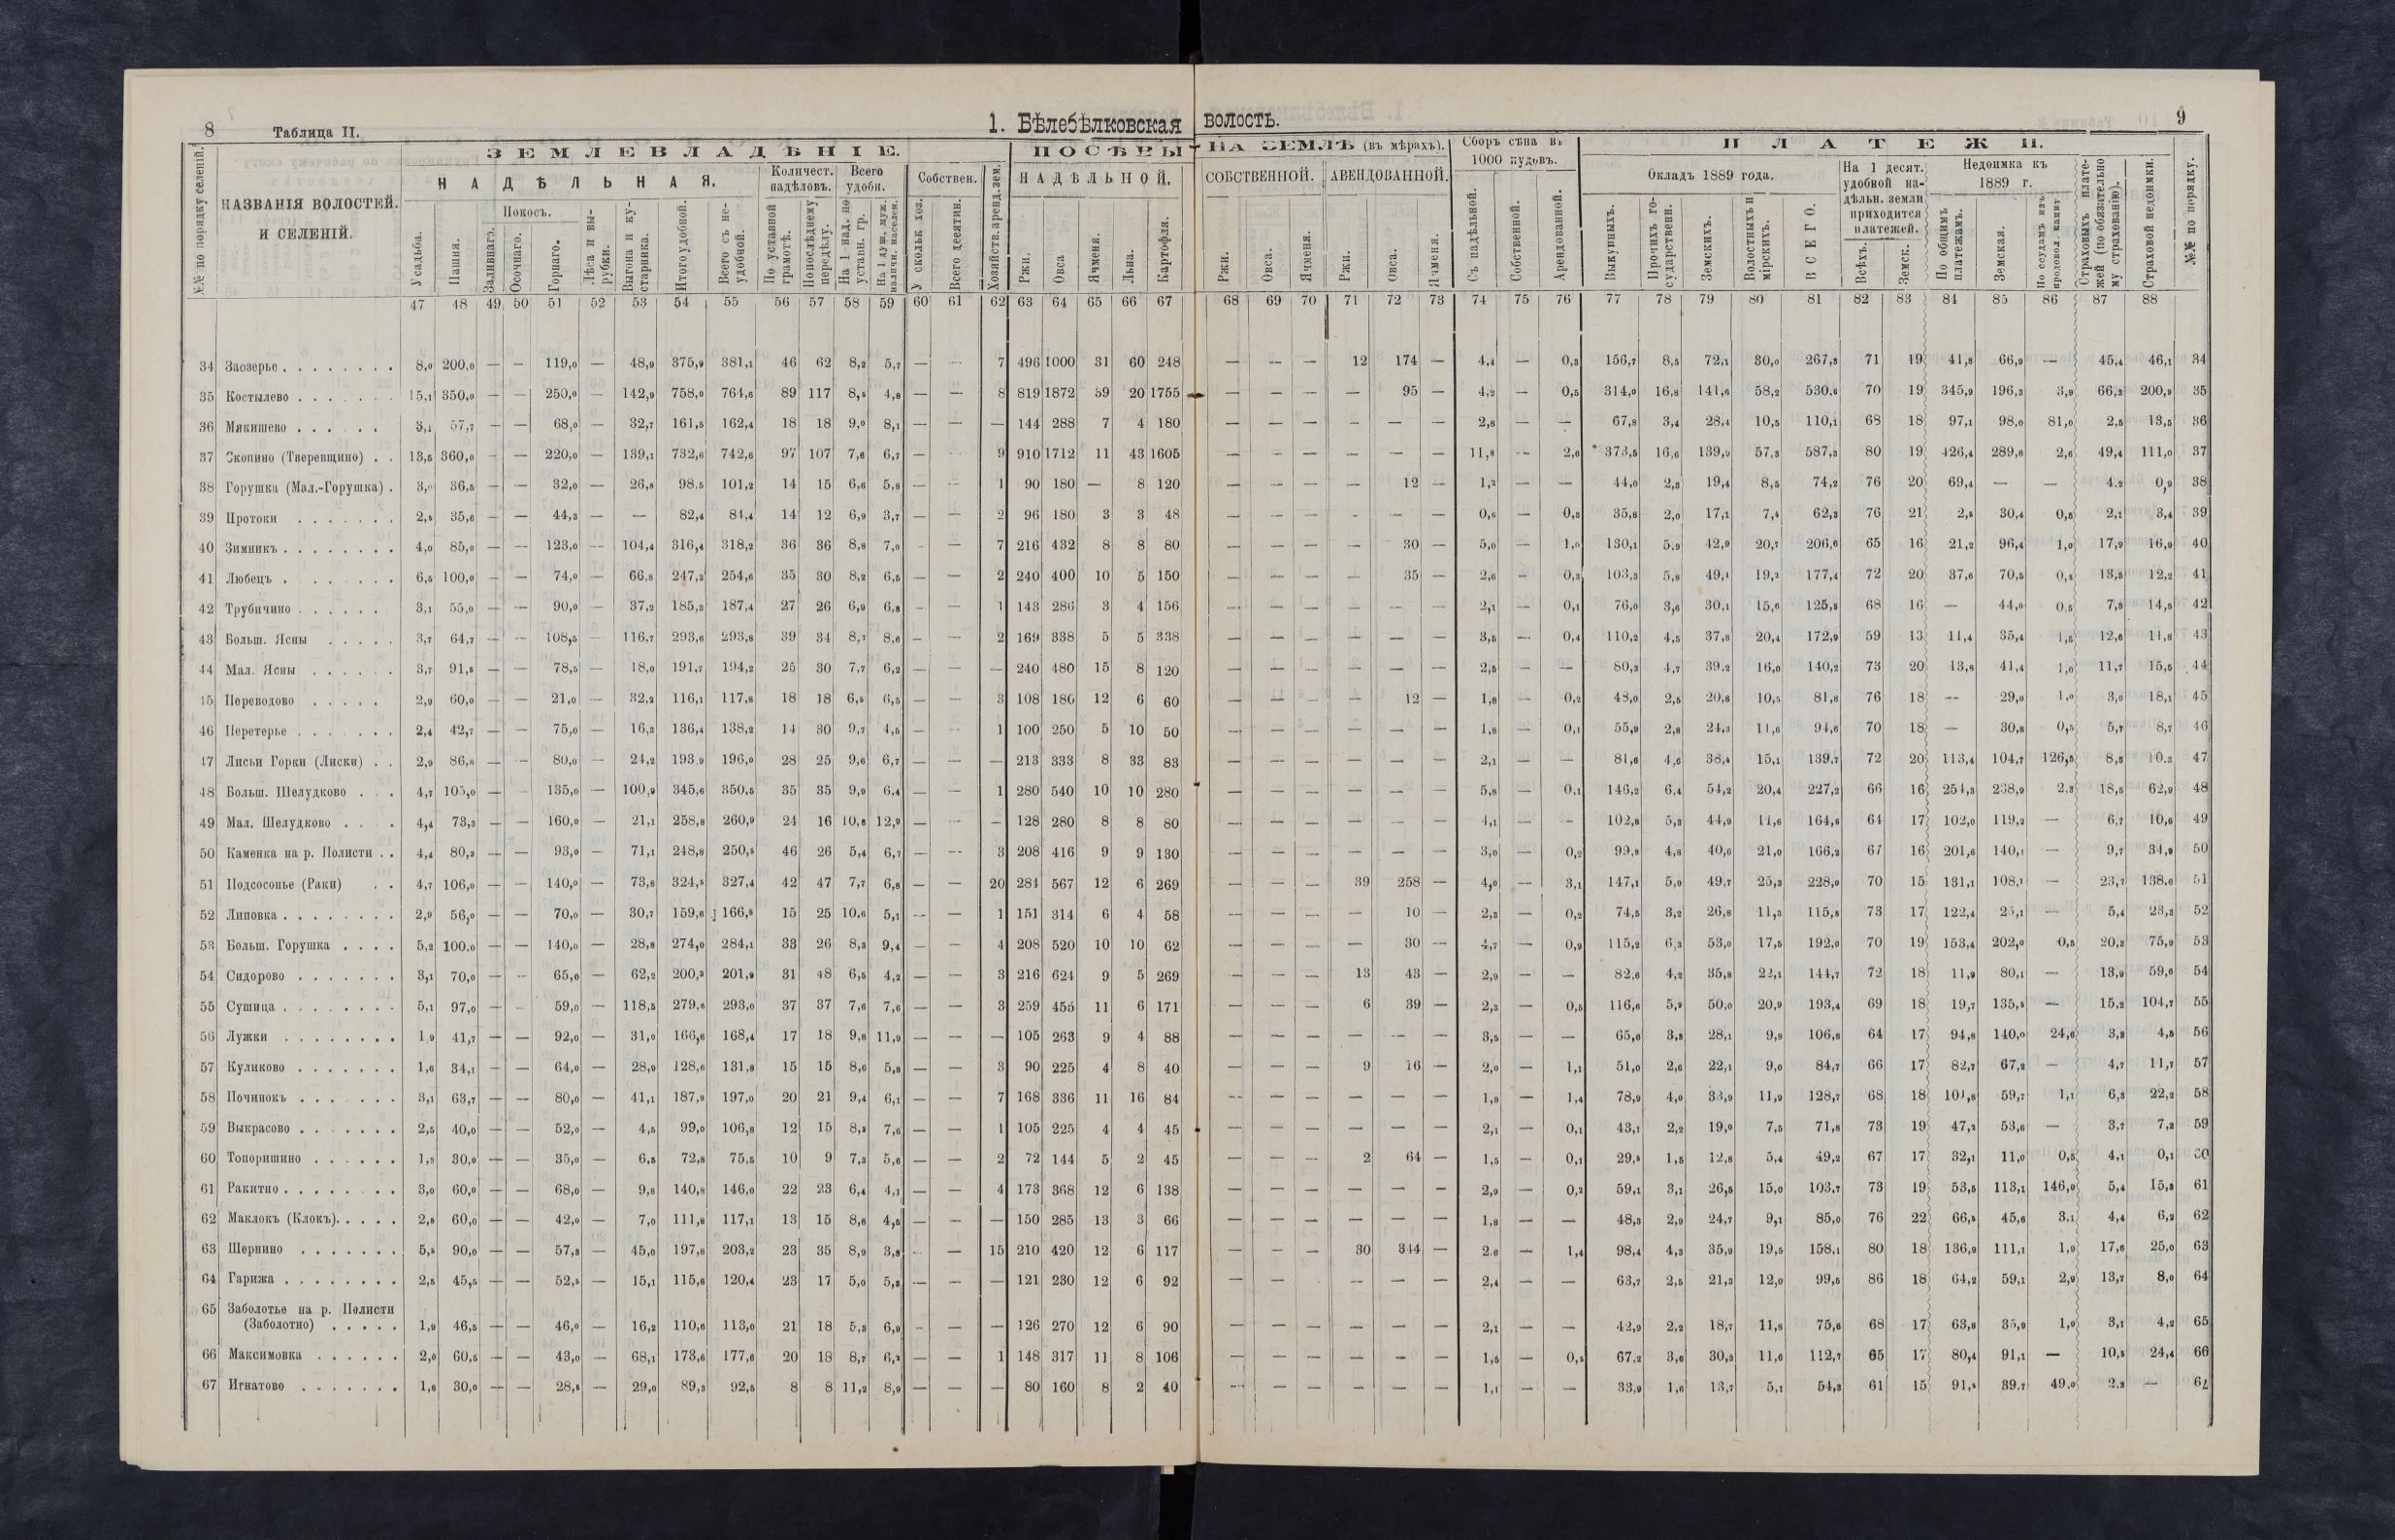 8 Таблица II. 1. Бѣлебѣлковская волость. 9
ЗЕМЛЕВЛАДѢНІЕ. ПОСѢВЫ НА ЗЕМЛѢ (въ мѣрахъ). Сборъ сѣна въ 1000 пудовъ. ПЛАТЕЖИ.
НАДѢЛЬНАЯ. Количест. надѣловъ. Всего удобн. Собствен. НАДѢЛЬНОЙ. СОБСТВЕННОЙ. АРЕНДОВАННОЙ. Окладъ 1889 года. На 1 десят. удобной надѣльн. земли приходится платежей. Недоимка къ 1889 г.
№№ по порядку селеній. НАЗВАНІЯ ВОЛОСТЕЙ И СЕЛЕНІЙ. Усадьба. Пашня. Покосъ. Заливнаго. Осочнаго. Горнаго. Лѣса и вырубки. Выгона и кустарника. Итого удобной. Всего съ неудобной. По уставной грамотѣ. По послѣднему передѣлу. На 1 над. по устанн. гр. На 1 душ. муж. наличн. населен. У сколькъ хоз. Всего десятин. Хозяйств. аренд. зем. Ржи. Овса Ячменя. Льна. Картофля. Ржи. Овса. Ячменя. Ржи. Овса. Ячменя. Съ надѣльной. Собственной. Арендованной. Выкупныхъ. Прочихъ государственн. Земскихъ. Волостныхъ и мірскихъ. ВСЕГО. Всѣхъ. Земск. По общимъ платежамъ. Земская. По ссудамъ изъ продовол. капит. Страховыхъ платежей (по обязательному страхованію). Страховой недоимки. №№ по порядку.
47 48 49 50 51 52 53 54 55 56 57 58 59 60 61 62 63 64 65 66 67 68 69 70 71 72 73 74 75 76 77 78 79 80 81 82 83 84 85 86 87 88
34 Заозерье 8,0 200,0 — — 119,0 — 48,9 375,9 381,1 46 62 8,2 5,7 — — 7 496 1000 31 60 248 — — — 12 174 — 4,4 — 0,3 156,7 8,5 72,1 30,0 267,3 71 19 41,8 66,9 — 45,4 46,1 34
35 Костылево 15,1 350,0 — — 250,0 — 142,9 758,0 764,6 89 117 8,5 4,8 — — 8 819 1872 59 20 1755 — — — — 95 — 4,2 — 0,5 314,0 16,8 141,6 58,2 530,6 70 19 345,9 196,3 3,9 66,3 200,9 35
36 Мякишево 3,1 57,7 — — 68,0 — 32,7 161,5 162,4 18 18 9,0 8,1 — — — 144 288 7 4 180 — — — — — — 2,8 — — 67,8 3,4 28,4 10,5 110,1 68 18 97,1 98,0 81,0 2,5 13,5 36
37 Скопино (Тверевщино) 13,5 360,0 — — 220,0 — 139,1 732,6 742,6 97 107 7,6 6,7 — — 9 910 1712 11 43 1605 — — — — — — 11,8 — 2,6 373,5 16,6 139,9 57,3 587,3 80 19 426,4 289,6 2,6 49,4 111,0 37
38 Горушка (Мал.-Горушка) 3,0 36,5 — — 32,0 — 26,8 98,5 101,2 14 15 6,6 5,8 — — 1 90 180 — 8 120 — — — — 12 — 1,3 — — 44,0 2,3 19,4 8,5 74,2 76 20 69,4 — — 4,2 0,9 38
39 Протоки 2,5 35,6 — — 44,3 — — 82,4 84,4 14 12 6,9 3,7 — — 2 96 180 3 3 48 — — — — — — 0,6 — 0,3 35,8 2,0 17,1 7,4 62,3 76 21 2,5 30,4 0,5 2,1 3,4 39
40 Зимникъ 4,0 85,0 — — 123,0 — 104,4 316,4 318,2 36 36 8,8 7,0 — — 7 216 432 8 8 80 — — — — 30 — 5,0 — 1,0 130,1 5,9 42,9 20,7 206,6 65 16 21,2 96,4 1,0 17,9 16,9 40
41 Любецъ 6,5 100,0 — — 74,0 — 66,8 247,3 254,6 35 30 8,2 6,5 — — 2 240 400 10 5 150 — — — — 35 — 2,6 — 0,3 103,3 5,8 49,1 19,2 177,4 72 20 37,6 70,5 0,5 13,5 12,2 41
42 Трубичино 3,1 55,0 — — 90,0 — 37,2 185,3 187,4 27 26 6,9 6,8 — — 1 143 286 3 4 156 — — — — — — 2,1 — 0,1 76,0 3,6 30,1 15,6 125,3 68 16 — 44,0 0,5 7,5 14,5 42
43 Больш. Ясны 3,7 64,7 — — 108,5 — 116,7 293,6 293,8 39 34 8,7 8,6 — — 2 169 338 5 5 338 — — — — — — 3,5 — 0,4 110,2 4,5 37,8 20,4 172,9 59 13 11,4 35,4 1,5 12,6 11,8 43
44 Мал. Ясны 3,7 91,5 — — 78,5 — 18,0 191,7 194,2 25 30 7,7 6,2 — — — 240 480 15 8 120 — — — — — — 2,5 — — 80,3 4,7 39,2 16,0 140,2 73 20 13,8 41,4 1,0 11,7 15,5 44
45 Переводово 2,9 60,0 — — 21,0 — 32,2 116,1 117,8 18 18 6,5 6,5 — — 3 108 180 12 6 60 — — — — 12 — 1,8 — 0,2 48,0 2,5 20,8 10,5 81,8 76 18 — 29,0 1,0 3,0 18,1 45
46 Перетерье 2,4 42,7 — — 75,0 — 16,3 136,4 138,2 14 30 9,7 4,5 — — 1 100 250 5 10 50 — — — — — — 1,8 — 0,1 55,9 2,8 24,3 11,6 94,6 70 18 — 30,8 0,5 5,7 8,7 46
47 Лисьи Горки (Лиски) 2,9 86,8 — — 80,0 — 24,2 193,9 196,0 28 25 9,6 6,7 — — — 213 333 8 33 83 — — — — — — 2,1 — — 81,6 4,6 38,4 15,1 139,7 72 20 113,4 104,7 126,5 8,3 10,3 47
48 Больш. Шелудково 4,7 105,0 — — 135,0 — 100,9 345,6 350,5 35 35 9,9 6,4 — — 1 280 540 10 10 280 — — — — — — 5,8 — 0,1 146,2 6,4 54,2 20,4 227,2 66 16 254,3 238,9 2,3 18,5 62,9 48
49 Мал. Шелудково 4,4 73,3 — — 160,0 — 21,1 258,8 260,9 24 16 10,8 12,9 — — — 128 280 8 8 80 — — — — — — 4,1 — — 102,8 5,3 44,9 11,6 164,6 64 17 102,0 119,2 — 6,7 10,6 49
50 Каменка на р. Полисти 4,4 80,3 — — 93,0 — 71,1 248,8 250,5 46 26 5,4 6,7 — — 3 208 416 9 9 130 — — — — — — 3,0 — 0,2 99,8 4,8 40,6 21,0 166,2 67 16 201,6 140,1 — 9,7 34,9 50
51 Подсосонье (Раки) 4,7 106,0 — — 140,0 — 73,8 324,5 327,4 42 47 7,7 6,8 — — 20 284 567 12 6 269 — — — 39 258 — 4,0 — 3,1 147,1 5,9 49,7 25,3 228,0 70 15 131,1 108,7 — 23,7 138,6 51
52 Липовка 2,9 56,0 — — 70,0 — 30,7 159,6 166,8 15 25 10,6 5,1 — — 1 151 314 6 4 58 — — — — 10 — 2,3 — 0,2 74,5 3,2 26,8 11,3 115,8 73 17 122,4 25,1 — 5,4 23,3 52
53 Больш. Горушка 5,2 100,0 — — 140,0 — 28,8 274,0 284,1 33 26 8,3 9,4 — — 4 208 520 10 10 62 — — — — 30 — 4,7 — 0,9 115,2 6,3 53,0 17,5 192,0 70 19 153,4 202,0 0,5 20,3 75,9 53
54 Сидорово 3,1 70,0 — — 65,0 — 62,2 200,3 201,9 31 48 6,5 4,2 — — 3 216 624 9 5 269 — — — 13 43 — 2,9 — — 82,6 4,2 35,8 22,1 144,7 72 18 11,9 80,1 — 13,9 59,6 54
55 Сушица 5,1 97,0 — — 59,0 — 118,5 279,6 293,0 37 37 7,6 7,6 — — 3 259 455 11 6 171 — — — 6 39 — 2,3 — 0,5 116,6 5,9 50,0 20,9 193,4 69 18 19,7 135,5 — 15,2 104,7 55
56 Лужки 1,9 41,7 — — 92,0 — 31,0 166,6 168,4 17 18 9,8 11,9 — — — 105 263 9 4 88 — — — — — — 3,5 — — 65,6 3,3 28,1 9,8 106,8 64 17 94,8 140,0 24,6 3,3 4,5 56
57 Куликово 1,6 34,1 — — 64,0 — 28,9 128,6 131,8 15 15 8,6 5,8 — — 3 90 225 4 8 40 — — — 9 16 — 2,0 — 1,1 51,0 2,6 22,1 9,0 84,7 66 17 82,7 67,2 — 4,7 11,7 57
58 Починокъ 3,1 63,7 — — 80,0 — 41,1 187,9 197,0 20 21 9,4 6,1 — — 7 168 336 11 16 84 — — — — — — 1,8 — 1,4 78,9 4,0 33,9 11,9 128,7 68 18 101,8 59,7 1,1 6,3 22,2 58
59 Выкрасово 2,5 40,0 — — 52,0 — 4,5 99,0 106,8 12 15 8,3 7,6 — — 1 105 225 4 4 45 — — — — — — 2,1 — 0,1 43,1 2,2 19,0 7,5 71,8 73 19 47,3 53,6 — 3,7 7,2 59
60 Топоришино 1,3 30,0 — — 35,0 — 6,5 72,8 75,5 10 9 7,3 5,6 — — 2 72 144 5 2 45 — — — 2 64 — 1,5 — 0,1 29,5 1,5 12,8 5,4 49,2 67 17 32,1 11,0 0,5 4,1 0,1 60
61 Ракитно 3,0 60,0 — — 68,0 — 9,8 140,8 146,0 22 23 6,4 4,1 — — 4 173 368 12 6 138 — — — — — — 2,9 — 0,2 59,1 3,1 26,5 15,0 103,7 73 19 53,5 113,1 146,0 5,4 15,8 61
62 Маклокъ (Клокъ). 2,8 60,0 — — 42,0 — 7,0 111,8 117,1 13 15 8,6 4,5 — — — 150 285 13 3 66 — — — — — — 1,8 — — 48,3 2,9 24,7 9,1 85,0 76 22 66,5 45,6 3,1 4,4 6,2 62
63 Шернино 5,5 90,0 — — 57,3 — 45,0 197,8 203,2 23 35 8,9 3,8 — — 15 210 420 12 6 117 — — — 30 344 — 2,6 — 1,4 98,4 4,3 35,9 19,5 158,1 80 18 136,9 111,1 1,9 17,6 25,0 63
64 Гарижа 2,5 45,5 — — 52,5 — 15,1 115,6 120,4 23 17 5,0 5,8 — — — 121 230 12 6 92 — — — — — — 2,4 — — 63,7 2,5 21,3 12,0 99,5 86 18 64,2 59,1 2,9 13,7 8,0 64
65 Заболотье на р. Полисти
(Заболотно) 1,9 46,5 — — 46,0 — 16,2 110,6 113,0 21 18 5,3 6,9 — — — 126 270 12 6 90 — — — — — — 2,1 — — 42,9 2,2 18,7 11,8 75,6 68 17 63,8 35,9 1,0 3,1 4,2 65
66 Максимовка 2,0 60,5 — — 43,0 — 68,1 173,6 177,6 20 18 8,7 6,3 — — 1 148 317 11 8 106 — — — — — — 1,5 — 0,5 67,2 3,6 30,3 11,6 112,7 65 17 80,4 91,1 — 10,5 24,4 66
67 Игнатово 1,8 30,0 — — 28,5 — 29,0 89,3 92,5 8 8 11,2 8,9 — — — 80 160 8 2 40 — — — — — — 1,1 — — 33,9 1,6 13,7 5,1 54,3 61 15 91,5 39,7 49,0 2,3 — 67